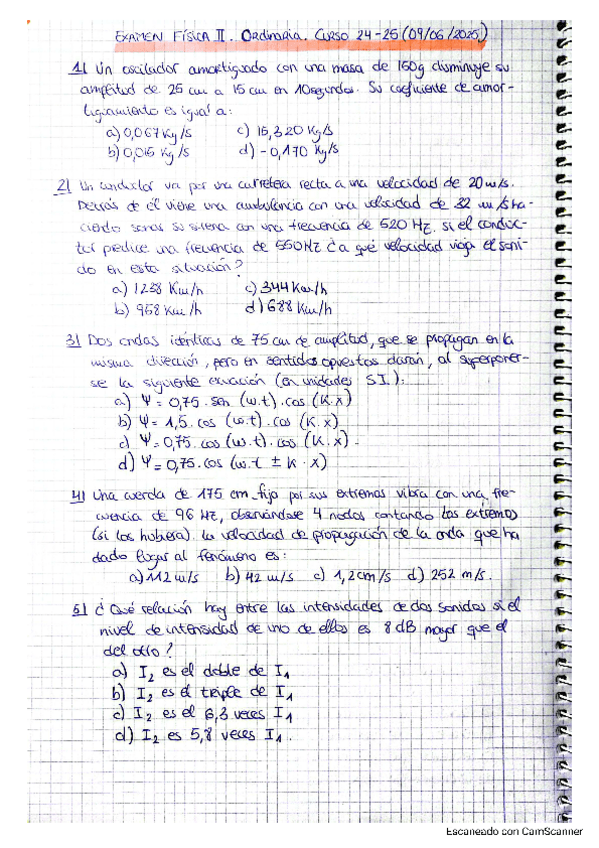 EXAMEN FÍSICA II. Ordinaria. CURSO 24-25 (09/06/2025)
1) Un oscilador amortiguado con una masa de 150g disminuye su
amplitud de 25 cm a 15 cm en 10segundos. Su coeficiente de amor-
tiguamiento es igual a:
a) 0,067 Kg/s c) 15,320 Kg/s
b) 0,015 Kg/s d) -0,170 Kg/s
2) Un conductor va por una carretera recta a una velocidad de 20 m/s.
Detrás de él viene una ambulancia con una velocidad de 32 m/s ha-
ciendo sonar su sirena con una frecuencia de 520 HZ. si el conduc-
tor predice una frecuencia de 550HZ ¿a qué velocidad viaja el soni-
do en esta situación?
a) 1238 Km/h c) 344 Km/h
b) 958 Km/h d) 688 Km/h
3) Dos ondas idénticas de 75 cm de amplitud, que se propagan en la
misma dirección, pero en sentidos opuestos darán, al superponer-
se la siguiente ecuación (en unidades S.I.):
a) Ψ = 0,75 · sen (w.t) · cos (K.x)
b) Ψ = 1,5 · cos (w.t) · cos (K.x)
c) Ψ = 0,75 · cos (w.t) · cos (K.x).
d) Ψ = 0,75 · cos (w.t ± K · x)
4) Una cuerda de 175 cm fija por sus extremos vibra con una fre-
cuencia de 96 HZ, observándose 4 nodos contando los extremos
(si los hubiera). la velocidad de propagación de la onda que ha
dado lugar al fenómeno es:
a) 112 m/s b) 42 m/s c) 1,2cm/s d) 252 m/s.
5) ¿Qué relación hay entre las intensidades de dos sonidos si el
nivel de intensidad de uno de ellos es 8 dB mayor que el
del otro?
a) I₂ es el doble de I₁
b) I₂ es el triple de I₁
c) I₂ es el 6,3 veces I₁
d) I₂ es 5,8 veces I₁.
Escaneado con CamScanner